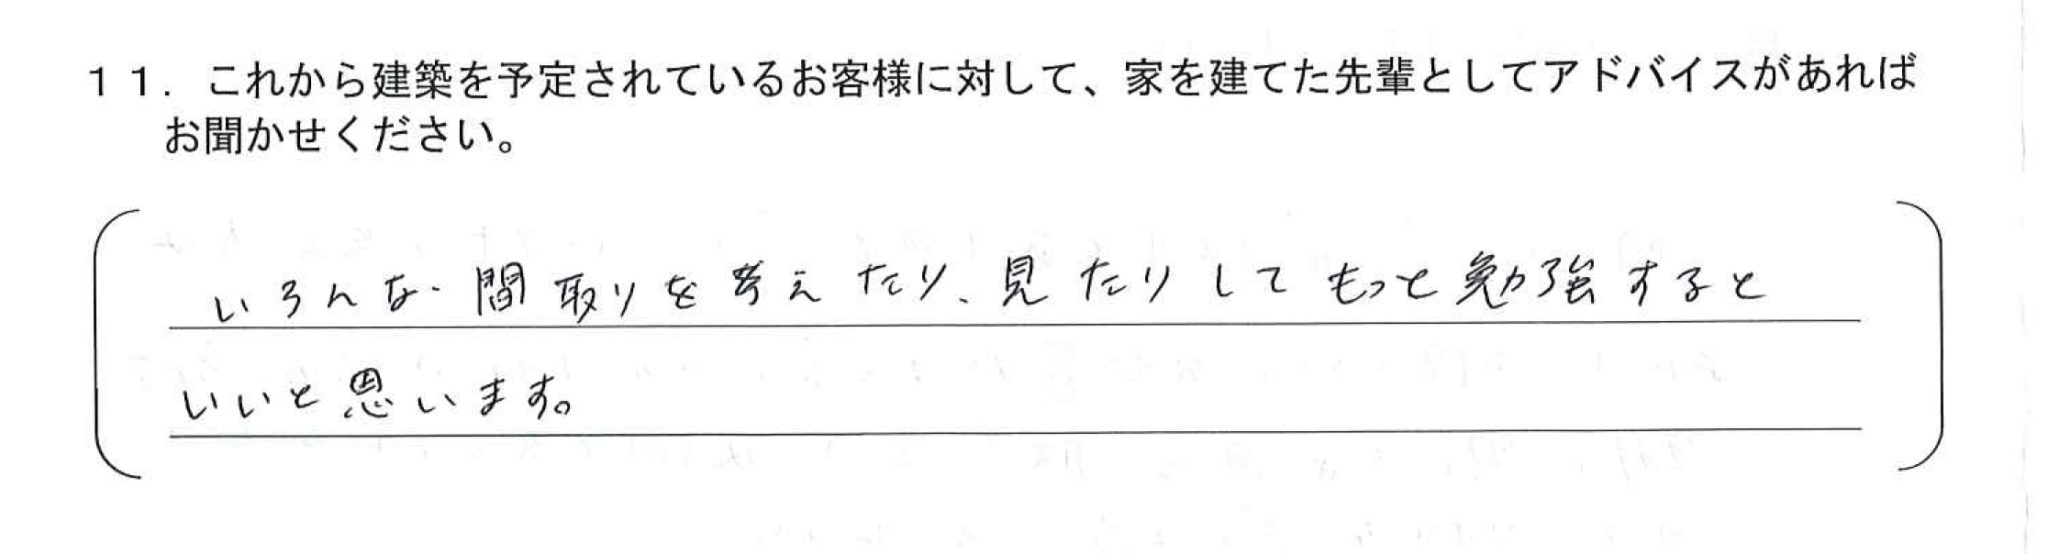 １１．これから建築を予定されているお客様に対して、家を建てた先輩としてアドバイスがあれば
お聞かせください。
いろんな間取りを考えたり、見たりしてもっと勉強すると
いいと思います。